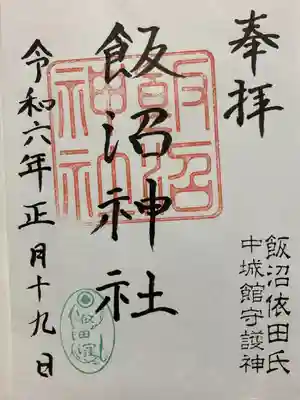 奉拝
飯沼依田氏
中城館守護神
飯沼神社
飯沼
神社
令和六年正月十九日